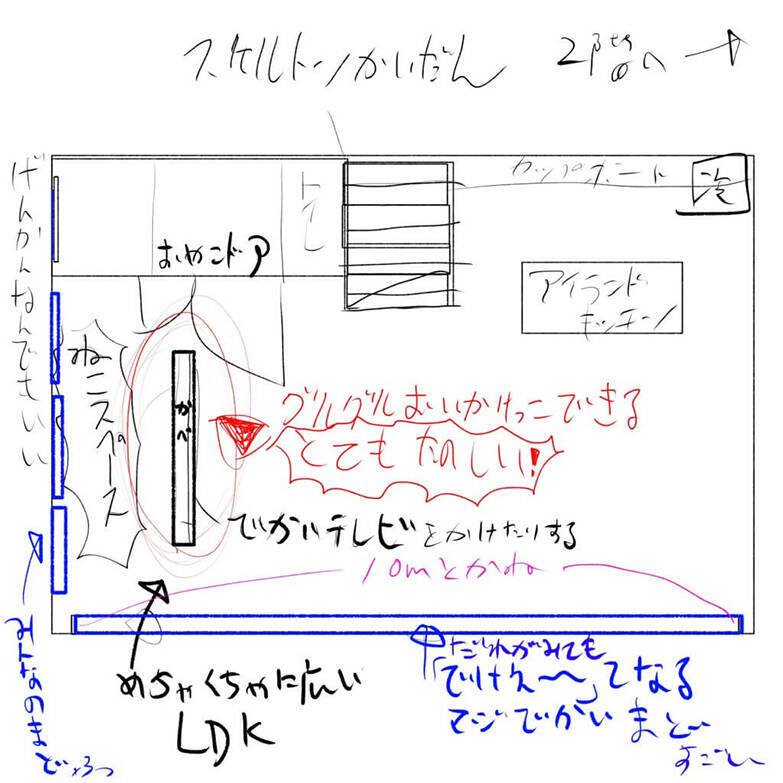 スケルトンかいだん
2階へ
げんかんなんでもいい
トイレ
カップボード
冷
おやこドア
アイランド
キッチン
ねこスペース
かべ
グルグルおいかけっこできる
とてもたのしい!
でかいテレビをかけたりする
10mとかね
めちゃくちゃに広い
LDK
だれがみても
「でけえ〜〜」てなる
マジでかいまど
すごーい